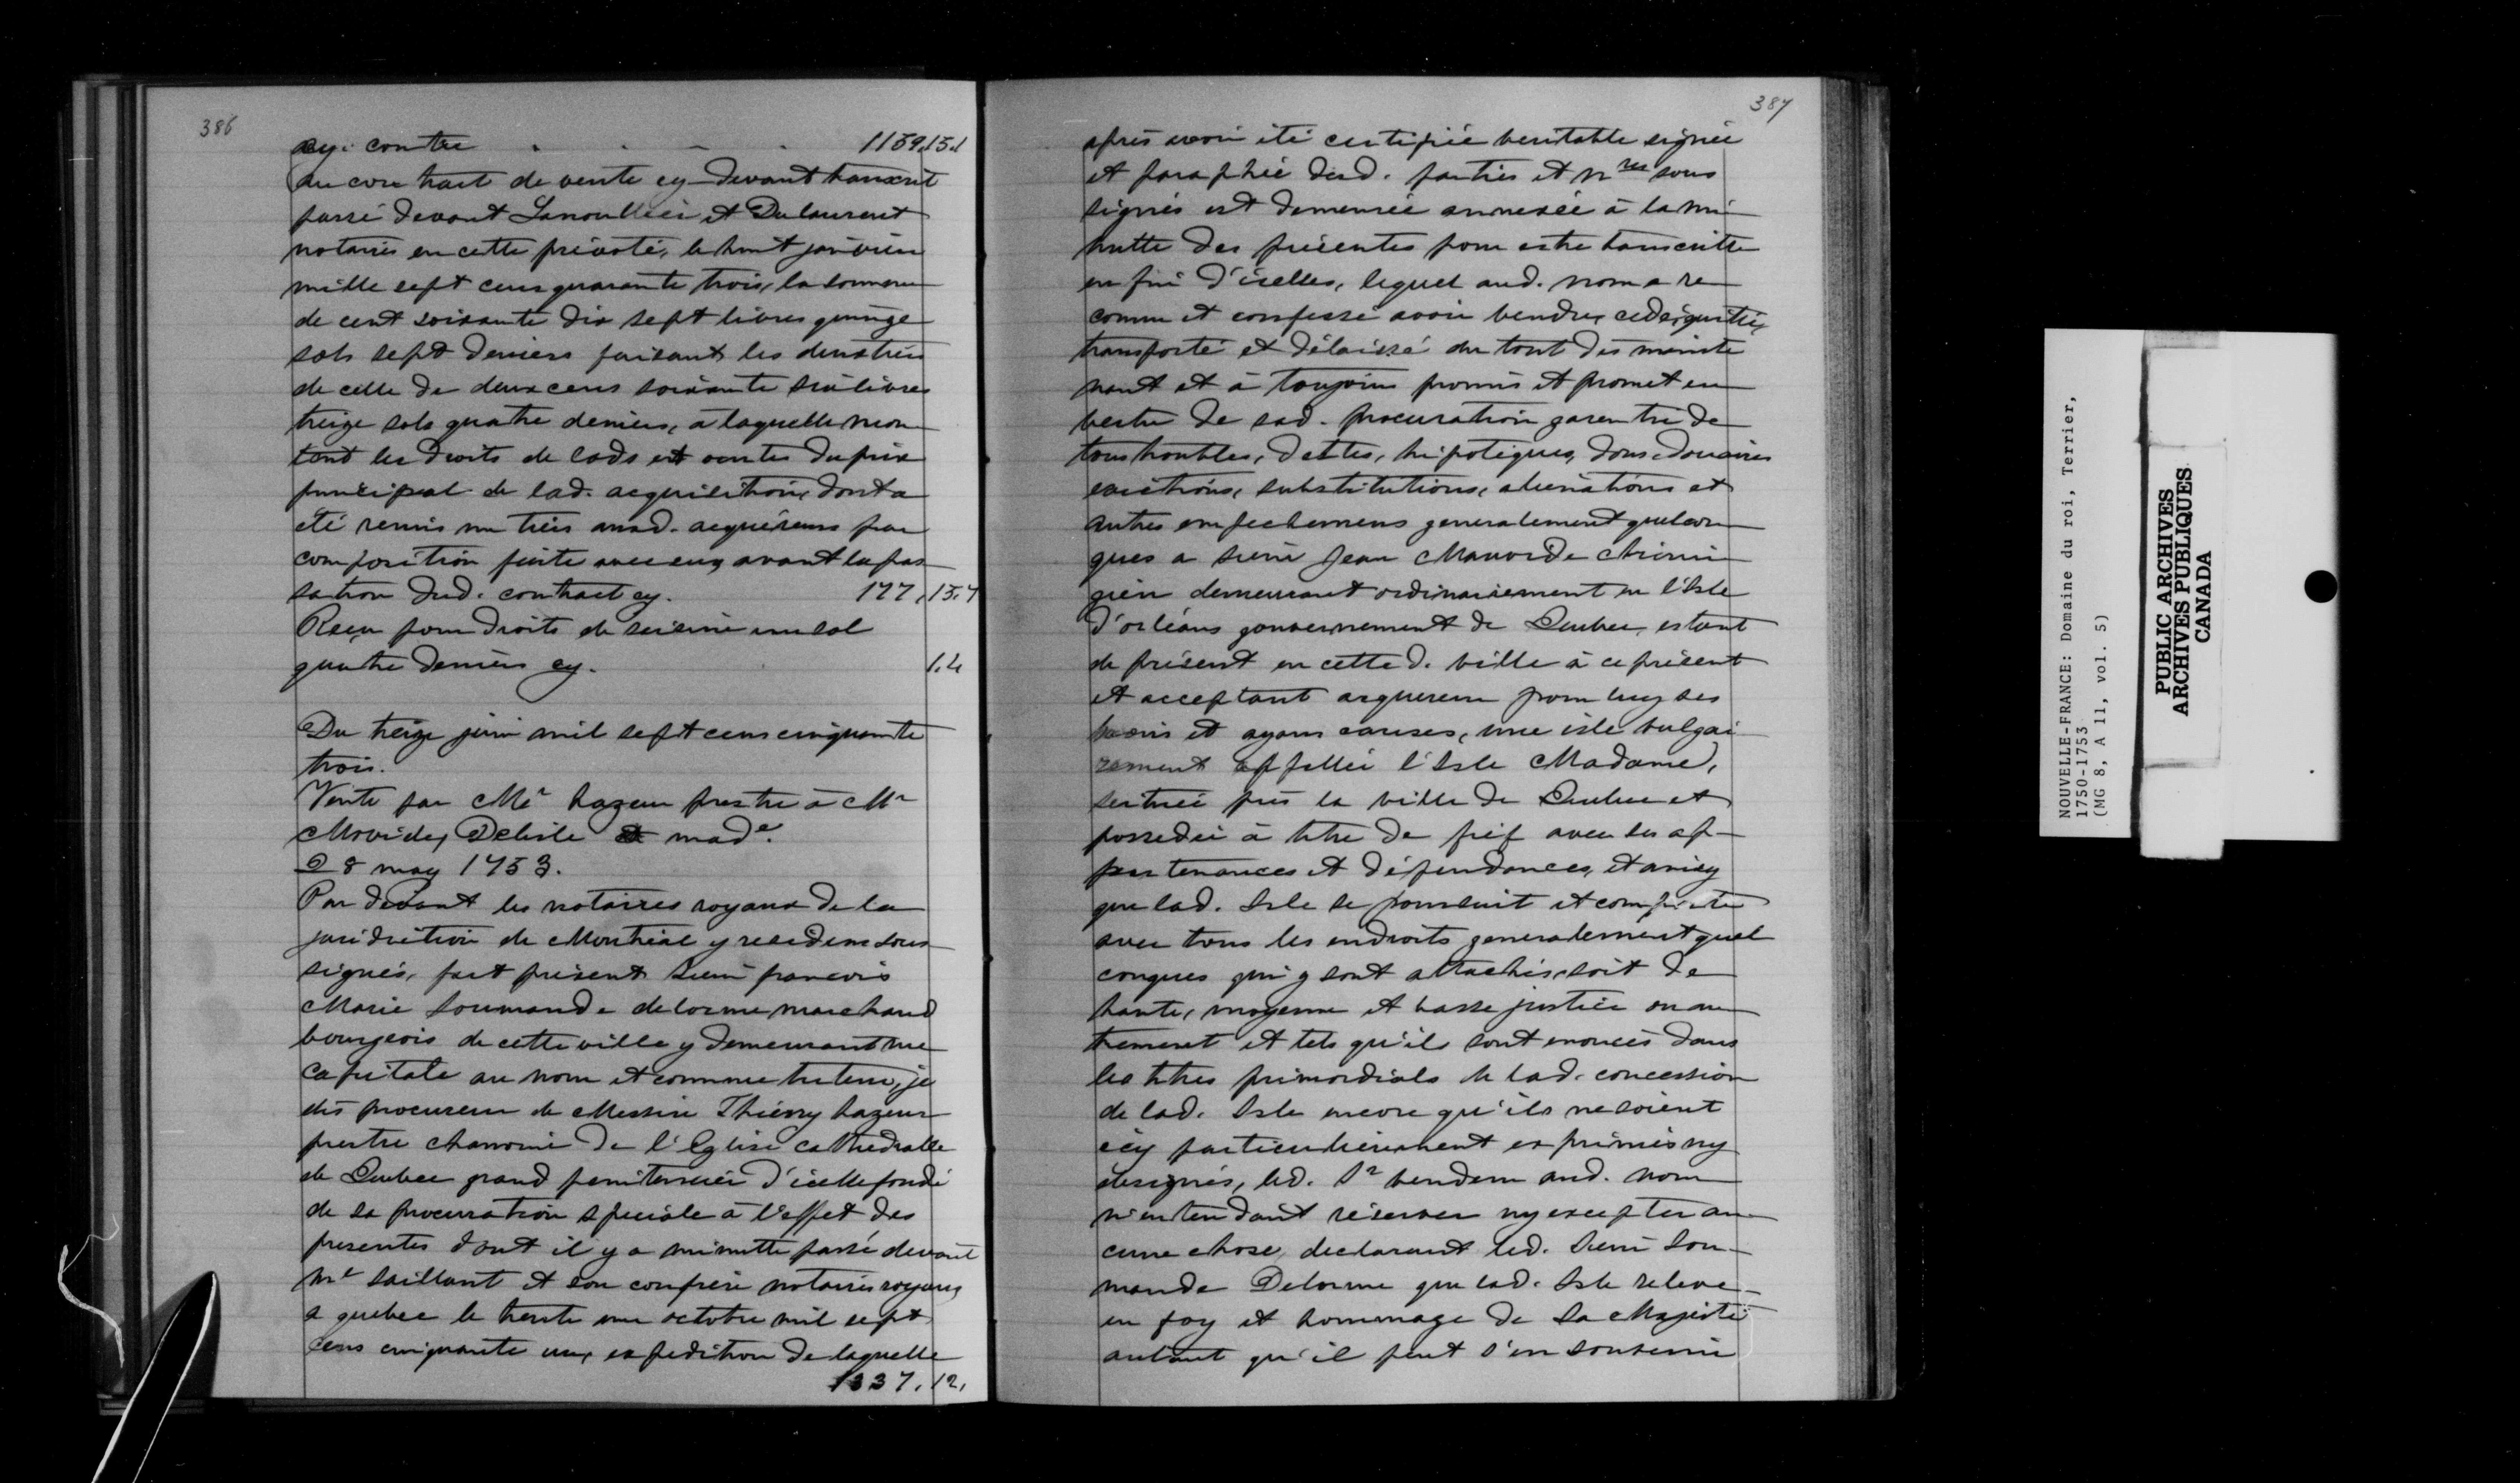 386
cy. contre . . . . 1159.15.1
du contract de vente cy-devant transcrit
passé devant Lanoullier et Dulaurent
notaires en cette prévoté, le huit janvier
mille sept cens quarante trois, la somme
de cent soixante dix sept livres quinze
sols sept deniers faisant les deux tiers
de celle de deux cens soixante six livres
treize sols quatre deniers, à laquelle mon
tent les droits de lods et ventes du prix
principal de lad. acquisition, dont a
été remis un tiers ausd. acquéreurs par
composition faite avec eux avant la pas
sation dud. contract cy. 177.15.7
Reçu pour droits de saisine un sol
quatre deniers cy. 1.4
Du treize juin mil sept cens cinquante
trois.
Vente par Mr hazeur prestre à Mr
Mauvide, De l'isle made.
28 may 1753.
Par devant les notaires royaux de la
juridiction de Montréal y residens sous
signés, fut présent Sieur francois
Marie Soumande delorme marchand
bourgeois de cette ville y demeurant rue
Capitale au nom et comme tuteur, je
dis procureur de Messire Thierry hazeur
prestre chanoine de l'Eglise cathedralle
de Quebec grand penitencier d'icelle fondé
de sa procuration speciale à l'effet des
presentes dont il y a minutte passé devant
Me Saillant et son confrère notaires royaux
a quebec le trente un octobre mil sept
cens cinquante un, expedition de laquelle
1337.12.
387
après avoir été certifiée veritable signée
et paraphée desd. parties et nres sous
signés est demeurée annexée à la mi
nutte des présentes pour estre transcritte
en fin d'icelles, lequel aud. nom a re
connu et confessé avoir vendu, cedé, quitté,
transporté et délaissé du tout dès mainte
nant et à toujours promis et promet en
vertu de sad. procuration garentir de
tous troubles, dettes, hipoteques, dons, douaires
evictions, substitutions, alienations et
autres empechemens generalement quelcon
ques a Sieur Jean Mauvide chirur
gien demeurant ordinairement en l'Isle
d'orléans gouvernement de Quebec, estant
de présent en cette d. ville à ce présent
et acceptant acquereur pour luy ses
hoirs et ayans causes, une isle vulgai
rement appellée l'Isle Madame,
scituée près la ville de Quebec et
possedée à titre de fief avec ses ap-
partenances et dépendances, et ainsy
que lad. Isle se poursuit et comporte
avec tous les endroits generalement quel
conques qui y sont attachés, soit de
haute, moyenne et basse justice ou au
trement et tels qu'ils sont enoncés dans
les titres primordials de lad. concession
de lad. Isle encore qu'ils ne soient
icy particulièrement exprimés ny
designés, led. Sr vendeur aud. nom
n'entendant réserver ny excepter au
cune chose, declarant led. Sieur Sou-
mande Delorme que lad. Isle releve
en foy et hommage de Sa Majesté
autant qu'il peut s'en souvenir
NOUVELLE-FRANCE: Domaine du roi, Terrier,
1750-1753
(MG 8, A 11, vol. 5)
PUBLIC ARCHIVES
ARCHIVES PUBLIQUES
CANADA